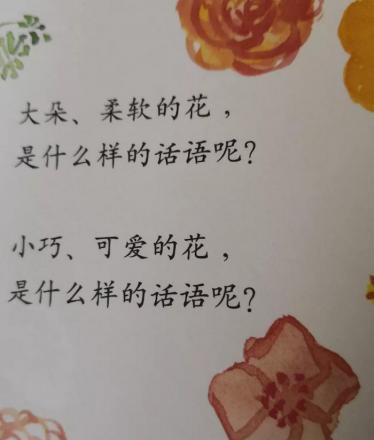 大朵、柔软的花，
是什么样的话语呢？
小巧、可爱的花，
是什么样的话语呢？